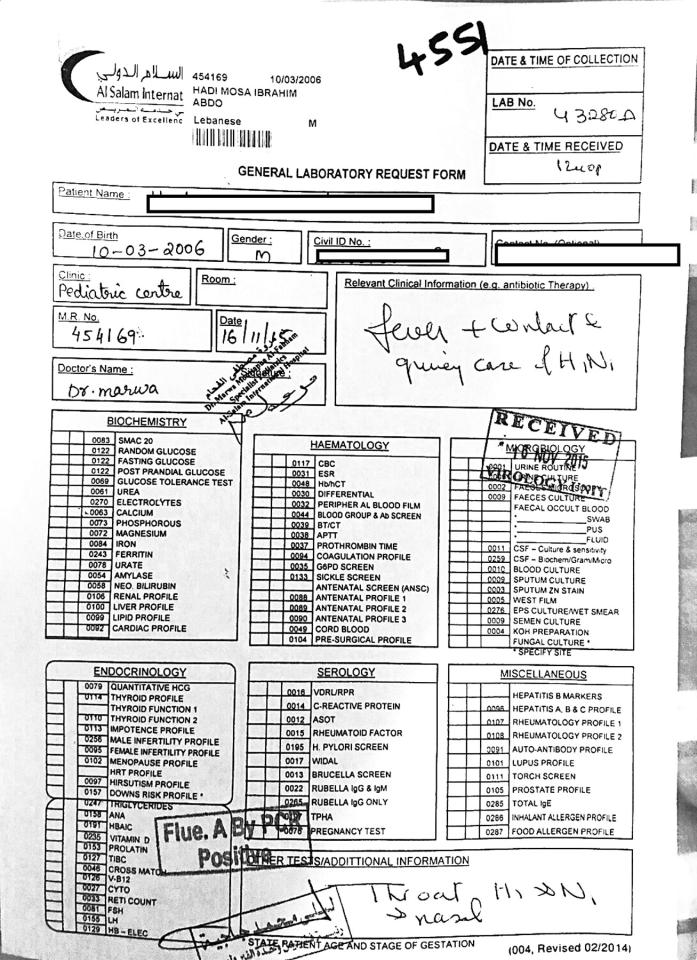 4551
السلام الدولي
Al Salam Internat
Leaders of Excellenc
454169 10/03/2006
HADI MOSA IBRAHIM
ABDO
Lebanese M
DATE & TIME OF COLLECTION
LAB No.
DATE & TIME RECEIVED
GENERAL LABORATORY REQUEST FORM
Patient Name :
Date of Birth
10-03-2006
Gender :
M
Civil ID No. :
Contact No. (Optional)
Clinic:
Pediatric centre
Room :
Relevant Clinical Information (e.g. antibiotic Therapy)
fever + contact &
case of H1N1
M.R. No.
454169
Date
16/11/
Doctor's Name :
Dr. marwa
Al-Salam International Hospital
RECEIVED
NOV 2015
VIROLOGY UNIT
BIOCHEMISTRY
0083 SMAC 20
0122 RANDOM GLUCOSE
0122 FASTING GLUCOSE
0122 POST PRANDIAL GLUCOSE
0069 GLUCOSE TOLERANCE TEST
0061 UREA
0270 ELECTROLYTES
0063 CALCIUM
0073 PHOSPHOROUS
0072 MAGNESIUM
0084 IRON
0243 FERRITIN
0078 URATE
0054 AMYLASE
0058 NEO. BILIRUBIN
0106 RENAL PROFILE
0100 LIVER PROFILE
0099 LIPID PROFILE
0092 CARDIAC PROFILE
HAEMATOLOGY
0117 CBC
0031 ESR
0048 Hb/hCT
0030 DIFFERENTIAL
0032 PERIPHER AL BLOOD FILM
0044 BLOOD GROUP & Ab SCREEN
0039 BT/CT
0038 APTT
0037 PROTHROMBIN TIME
0094 COAGULATION PROFILE
0035 G6PD SCREEN
0133 SICKLE SCREEN
ANTENATAL SCREEN (ANSC)
0088 ANTENATAL PROFILE 1
0089 ANTENATAL PROFILE 2
0090 ANTENATAL PROFILE 3
0049 CORD BLOOD
0104 PRE-SURGICAL PROFILE
MICROBIOLOGY
0001 URINE ROUTINE
CULTURE
0002 FAECES
0009 FAECES CULTURE
FAECAL OCCULT BLOOD
*____________SWAB
*____________PUS
*____________FLUID
0011 CSF - Culture & sensitivity
0259 CSF - Biochem/Gram/Micro
0010 BLOOD CULTURE
0009 SPUTUM CULTURE
0003 SPUTUM ZN STAIN
0005 WEST FILM
0276 EPS CULTURE/WET SMEAR
0009 SEMEN CULTURE
0004 KOH PREPARATION
FUNGAL CULTURE *
* SPECIFY SITE
ENDOCRINOLOGY
0079 QUANTITATIVE HCG
0114 THYROID PROFILE
THYROID FUNCTION 1
0110 THYROID FUNCTION 2
0113 IMPOTENCE PROFILE
0256 MALE INFERTILITY PROFILE
0095 FEMALE INFERTILITY PROFILE
0102 MENOPAUSE PROFILE
HRT PROFILE
0097 HIRSUTISM PROFILE
0157 DOWNS RISK PROFILE *
0247 TRIGLYCERIDES
0158 ANA
0191 HBAIC
0235 VITAMIN D
0153 PROLATIN
0127 TIBC
0046 CROSS MATCH
0126 V-B12
0027 CYTO
0033 RETI COUNT
0081 FSH
0155 LH
0129 HB - ELEC
SEROLOGY
0016 VDRL/RPR
0014 C-REACTIVE PROTEIN
0012 ASOT
0015 RHEUMATOID FACTOR
0195 H. PYLORI SCREEN
0017 WIDAL
0013 BRUCELLA SCREEN
0022 RUBELLA IgG & IgM
0265 RUBELLA IgG ONLY
TPHA
0076 PREGNANCY TEST
MISCELLANEOUS
HEPATITIS B MARKERS
0096 HEPATITIS A, B & C PROFILE
0107 RHEUMATOLOGY PROFILE 1
0108 RHEUMATOLOGY PROFILE 2
0091 AUTO-ANTIBODY PROFILE
0101 LUPUS PROFILE
0111 TORCH SCREEN
0105 PROSTATE PROFILE
0285 TOTAL IgE
0286 INHALANT ALLERGEN PROFILE
0287 FOOD ALLERGEN PROFILE
Flue. A By PCR
Positive
OTHER TESTS/ADDITTIONAL INFORMATION
Throat H1N1
nasal
*STATE PATIENT AGE AND STAGE OF GESTATION
(004, Revised 02/2014)